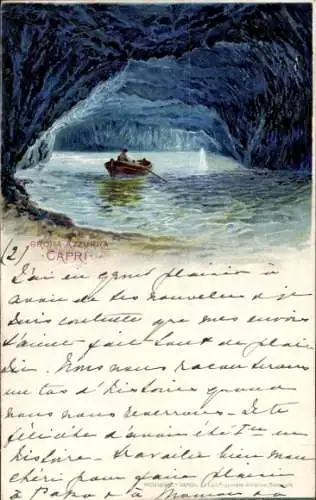 GROTTA AZZURRA
CAPRI
(2) J'ai eu grand plaisir à
avoir de tes nouvelles et je
suis contente que mes envois
t'aient fait tant de plaisir
Nous nous raconterons
un tas d'histoires quand
nous nous reverrons. Je te
félicite d'avoir été 1er en
Histoire. Travaille bien mon
chéri pour faire plaisir
à Papa et à Maman